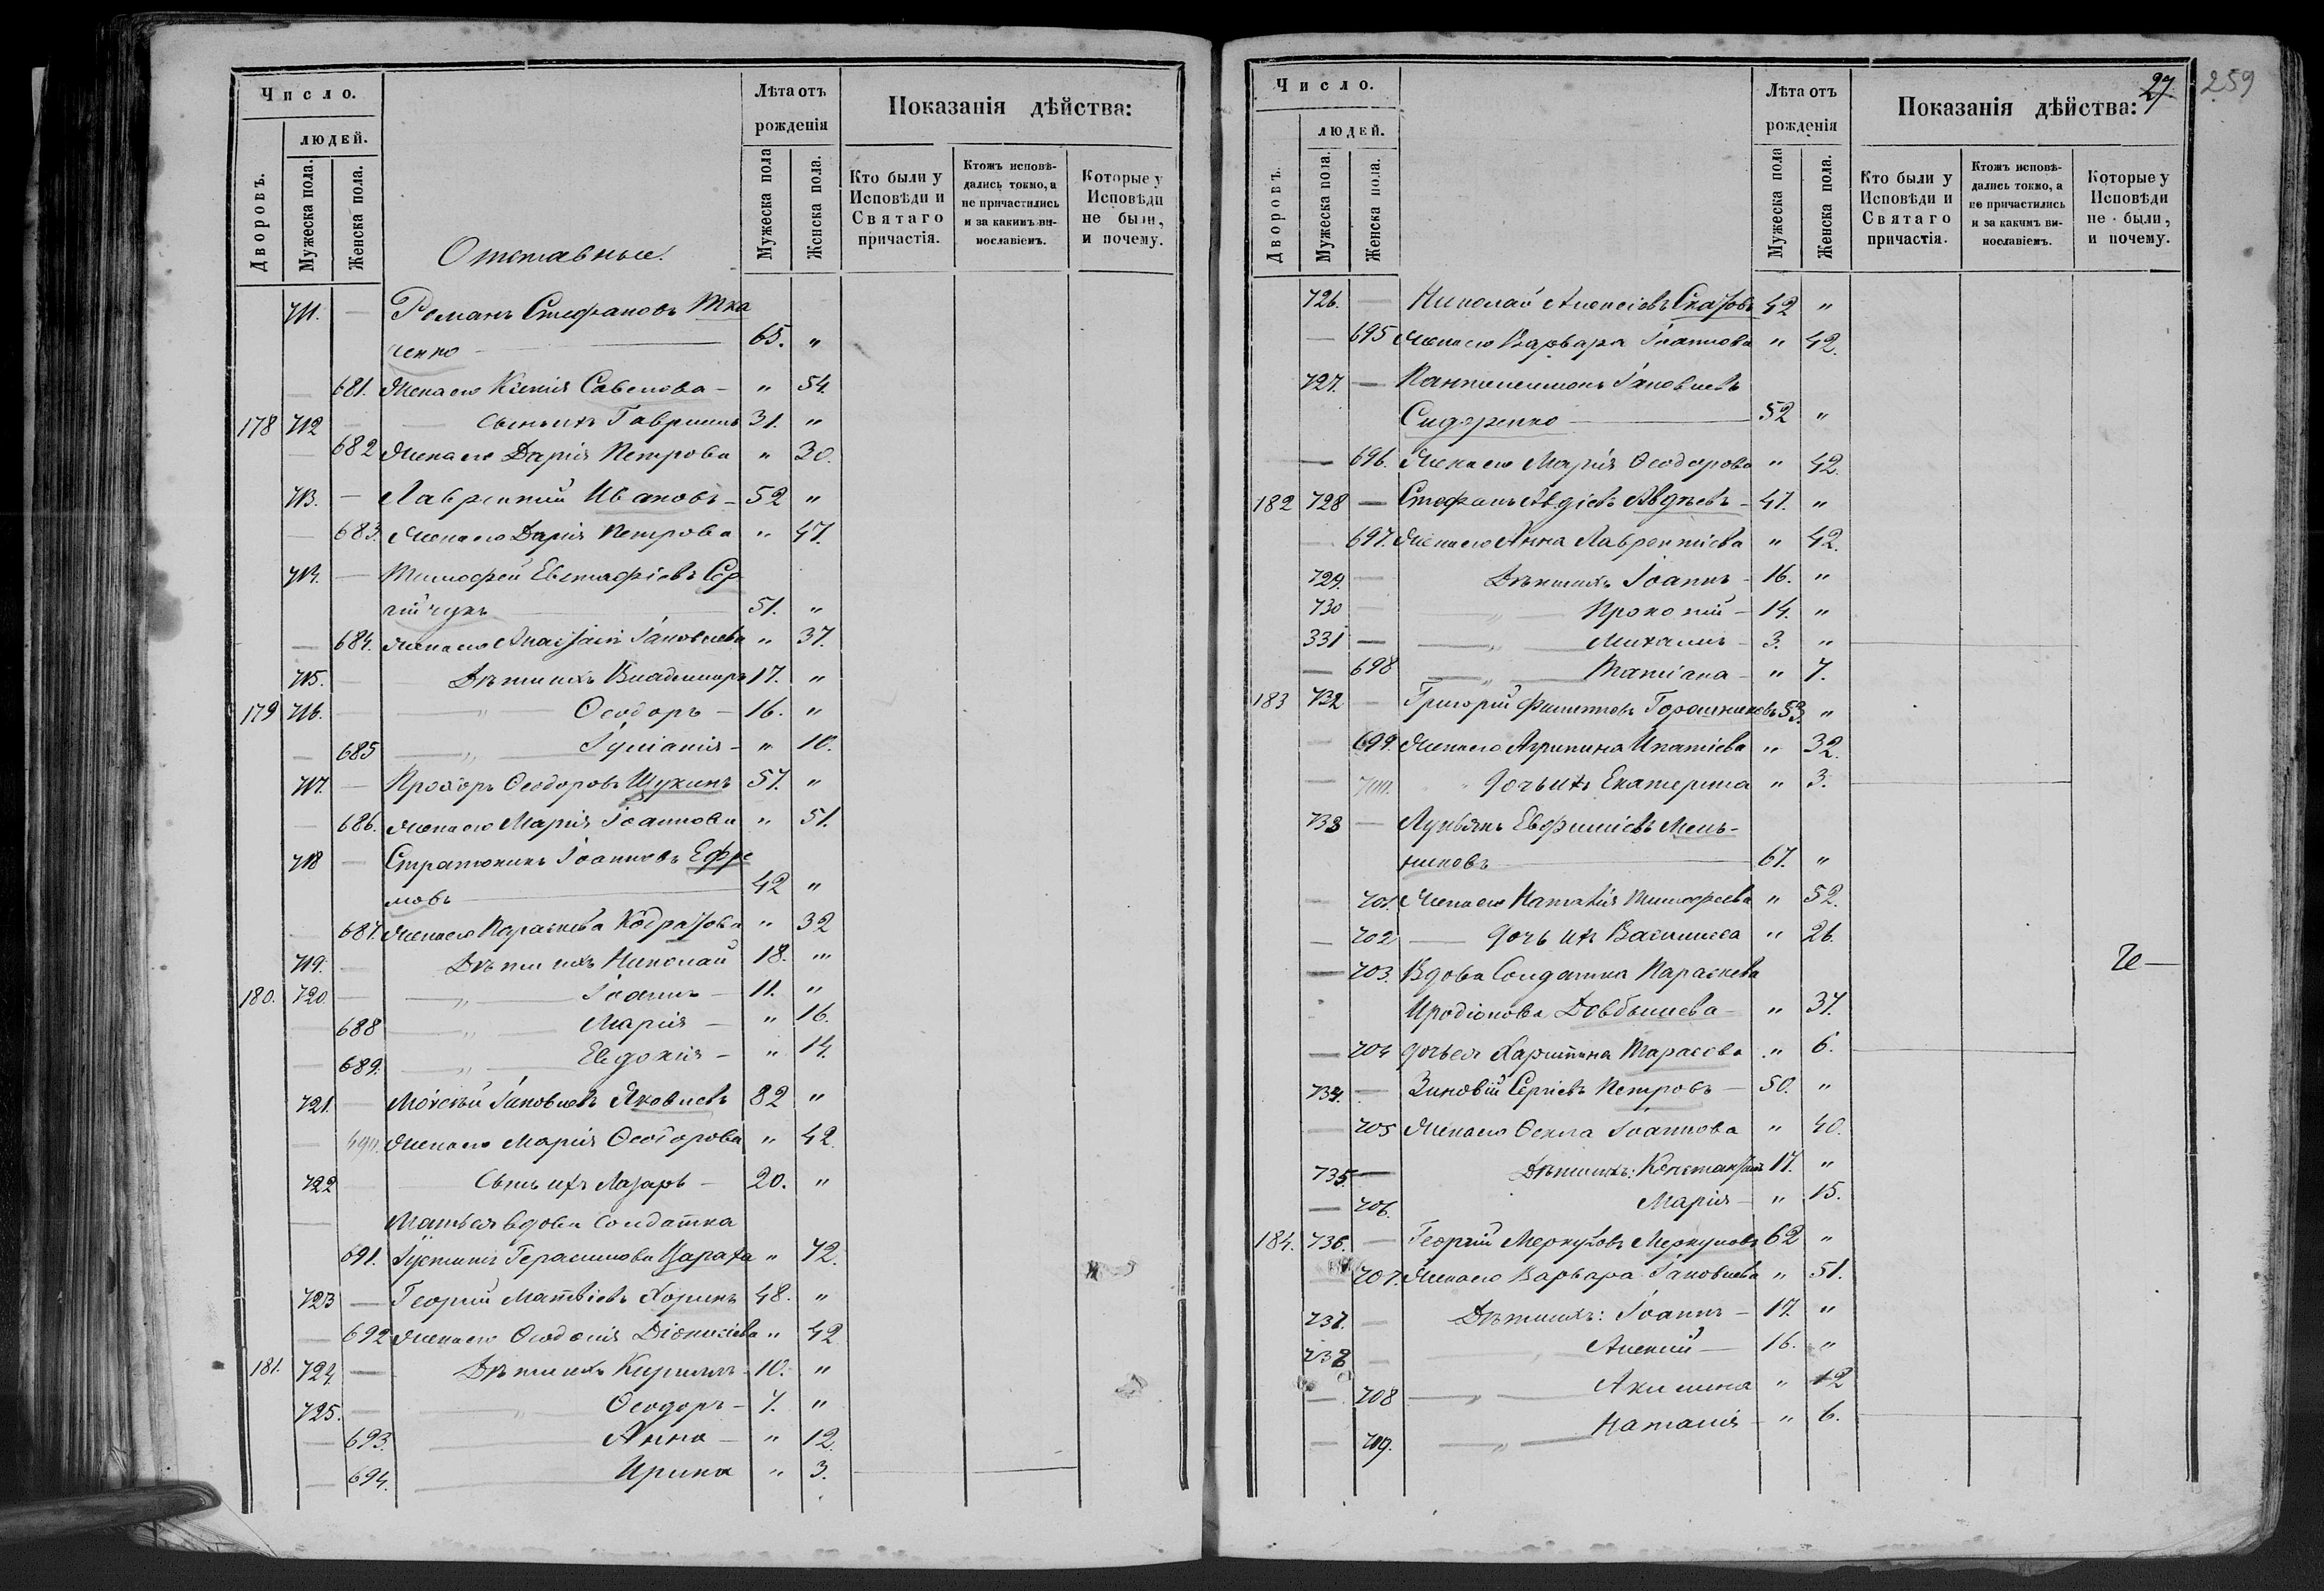 Число.
людей.
Дворовъ.
Мужеска пола.
Женска пола.
Отставные.
Лѣта отъ
рожденія
Мужеска пола
Женска пола.
Показанія дѣйства:
Кто были у
Исповѣди и
Святаго
причастія.
Ктожъ исповѣ-
дались токмо, а
не причастились
и за какимъ ви-
нословіемъ.
Которые у
Исповѣди
не были,
и почему.
711. — Романъ Стефановъ Тка
ченко — 65. "
— 681. Жена его Ксенія Савелова — " 54.
178 712 — Сынъ ихъ Гавріилъ 31. "
— 682 Жена его Дарія Петрова " 30.
713. — Лаврентій Ивановъ — 52 "
— 683. Жена его Дарія Петрова " 47.
714. — Тимофей Евстафіевъ Сер
гійчукъ — 51. "
— 684. Жена его Анастасія Іаковлева " 37.
715. — Дѣти ихъ Владимиръ 17. "
179 716. — " — Ѳеодоръ — 16. "
— 685 — " — Іуліанія — " 10.
717. — Прохоръ Ѳеодоровъ Щукинъ 57. "
— 686. Жена его Марія Іоаннова " 51.
718 — Стратоникъ Іоанновъ Ефре
мовъ — 42 "
— 687. Жена его Параскева " 32
719. — Дѣти ихъ Николай 18. "
180. 720. — " — Іоаннъ — 11. "
— 688 — " — Марія — " 16.
— 689. — " — Евдокія — " 14.
721. — Моисей Іаковлевъ Яковлевъ 82 "
— 690. Жена его Марія Ѳеодорова " 42.
722 — Сынъ ихъ Лазарь — 20. "
— Мать ея вдова солдатка
691. Іустинія Герасимова " 72.
723 — Георгій Матвіевъ Хоринъ 48. "
— 692 Жена его Ѳеодосія Діонисіева " 42
181. 724. — Дѣти ихъ Кириллъ — 10. "
725. — " — Ѳеодоръ — 7. "
— 693. — Анна — " 12.
— 694. — Ирина " 3.
27
259
Число.
людей.
Дворовъ.
Мужеска пола.
Женска пола.
Лѣта отъ
рожденія
Мужеска пола
Женска пола.
Показанія дѣйства:
Кто были у
Исповѣди и
Святаго
причастія.
Ктожъ исповѣ-
дались токмо, а
не причастились
и за какимъ ви-
нословіемъ.
Которые у
Исповѣди
не были,
и почему.
726. — Николай Алексіевъ 42 "
— 695 Жена его Варвара Іоаннова " 42.
727. — Пантелеимонъ Іаковлевъ
Сидоренко — 52 "
— 696. Жена его Марія Ѳеодорова " 42.
182 728 — Стефанъ Авдіевъ Авдѣевъ — 47. "
— 697. Жена его Анна Лаврентіева " 42.
729. — Дѣти ихъ Іоаннъ — 16. "
730 — " — Прокопій — 14. "
331 — " — Михаилъ — 3. "
— 698 — " — Татіана — " 7.
183 732 — Григорій Филиповъ 53. "
— 699. Жена его Агрипина Ипатіева " 32.
— 700. " Дочь ихъ Екатерина " 3.
733 — Лукьянъ Евфиміевъ Мель-
никовъ — 67. "
— 701. Жена его Наталія Тимофеева " 52.
— 702 — Дочь ихъ Василисса " 26.
— 703. Вдова Солдатка Параскева
Иродіонова Довбышева — " 37.
— 704 дочь ея Харитина Тарасова " 6.
734. — Зиновій Сергіевъ Петровъ — 50. "
— 705 Жена его Ѳекла Іоаннова " 40.
735. — Дѣти ихъ: Константинъ 17. "
— 706. Марія — " 15.
184. 736. — Георгій Меркуловъ Меркуловъ 62 "
707. Жена его Варвара Іаковлева " 51.
737. — Дѣти ихъ: Іоаннъ — 17. "
738 — " Алексій — 16. "
— 708 — " — Акилина " 12
— 709. — " — Наталія — " 6.